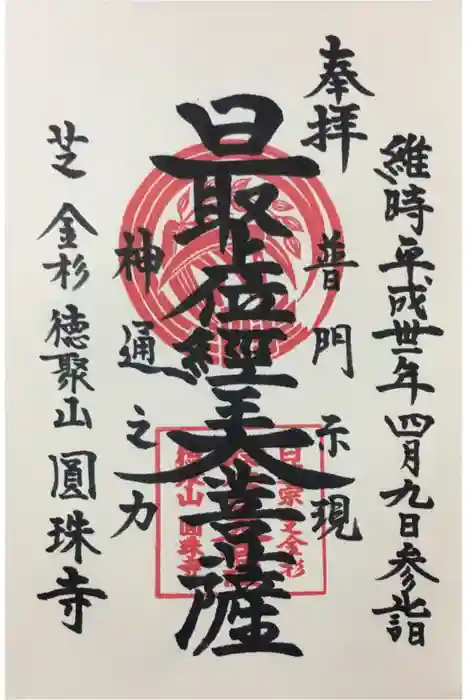 維時平成卅一年四月九日参詣
奉拝
普門示現
最上位經王大菩薩
神通之力
芝 金杉 徳聚山 圓珠寺
日蓮宗芝金杉
徳聚山圓珠寺